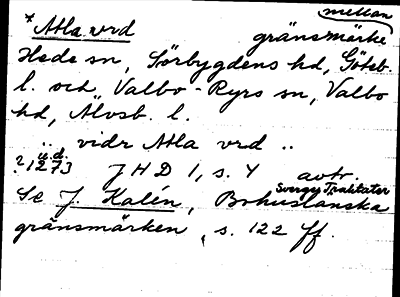 mellan
*Atla vrd gränsmärke
Hede sn, Sörbygdens hd, Göteb.
l. och Valbo-Ryrs sn, Valbo
hd, Älvsb. l.
.. vidr Atla vrd ..
u.d.
? 1273 JHD 1, s. 4 avtr.
Sverges Traktater
Se J. Kalén, Bohuslänska
gränsmärken, s. 122 ff.